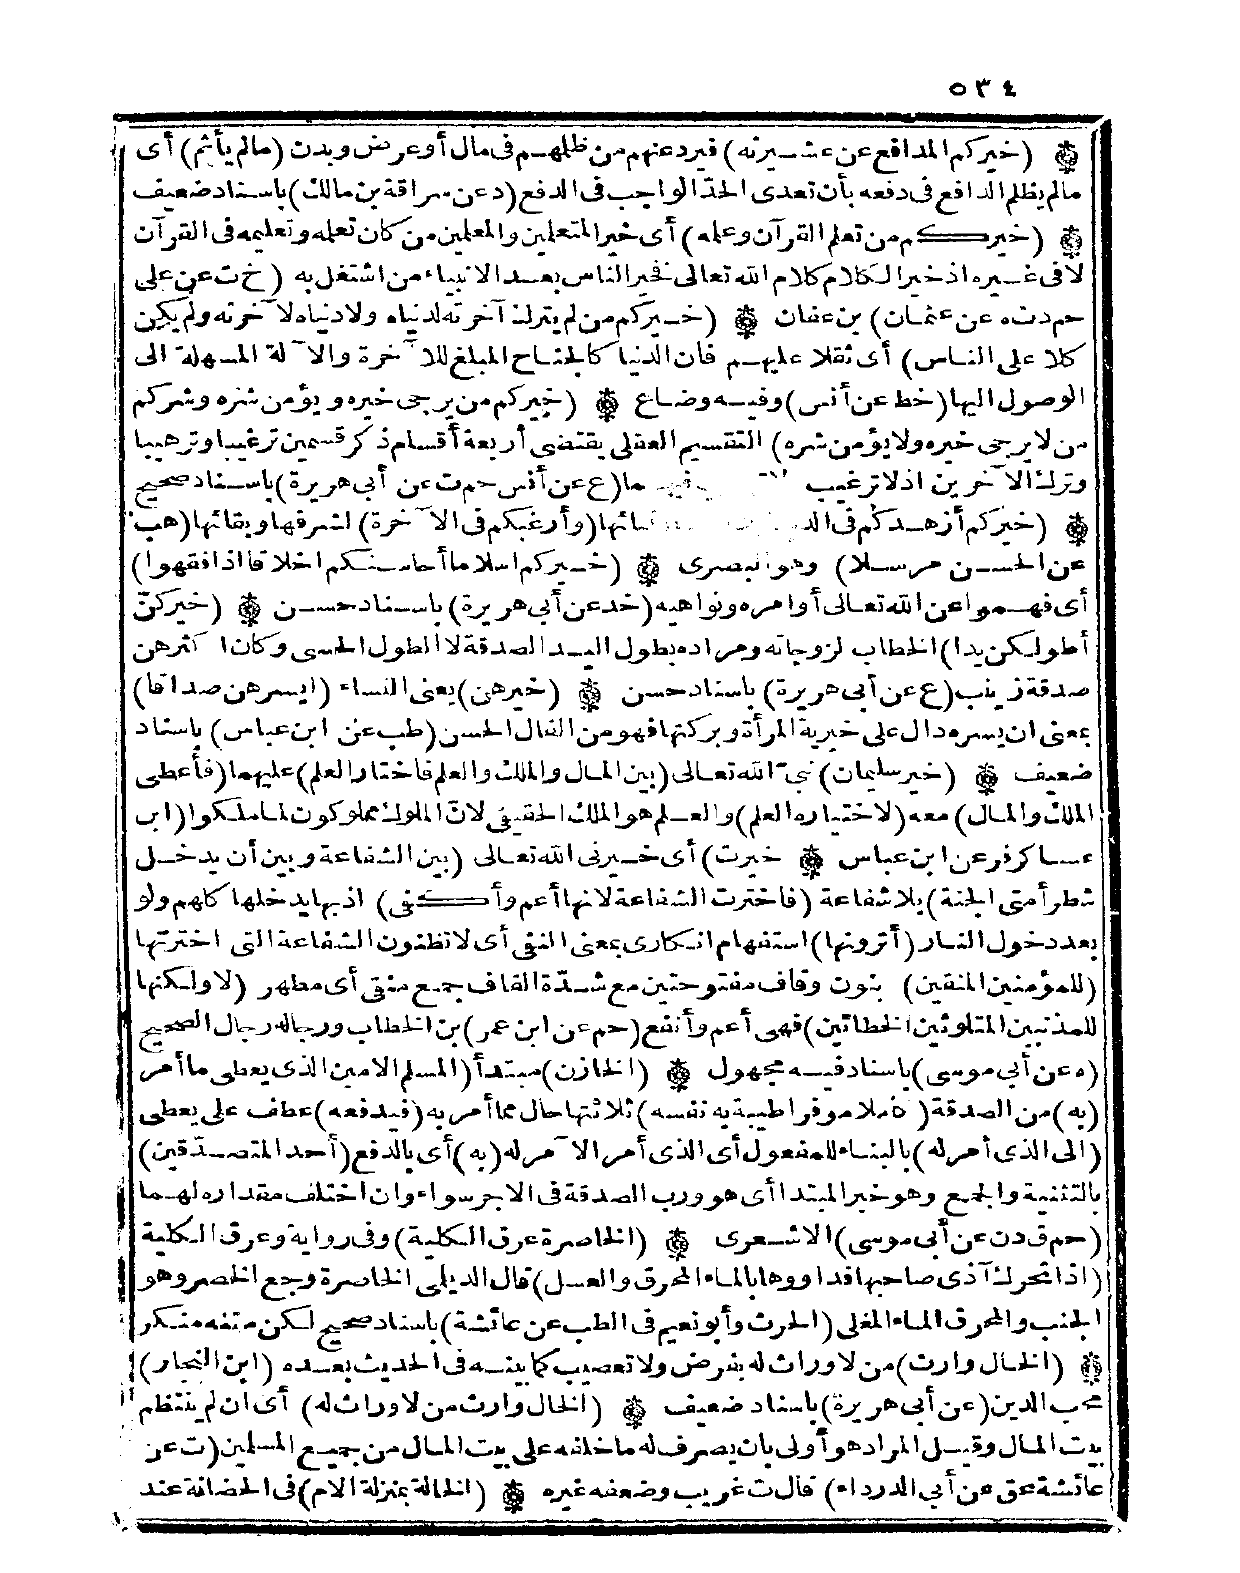 ٥٣٤
(خيركم المدافع عن عشيرته) فيرد عنهم من ظلمهم فى مال أو عرض وبدن (مالم يأثم) أى
مالم يظلم الدافع فى دفعه بأن تعدى الحدّ الواجب فى الدفع (د عن سراقة بن مالك) باسناد ضعيف
(خيركم من تعلم القرآن وعلمه) أى خير المتعلمين والمعلمين من كان تعلمه وتعليمه فى القرآن
لا فى غيره اذ خير الكلام كلام الله تعالى فخير الناس بعد الانبياء من اشتغل به (خ ت عن على
حم د ت ه عن عثمان) بن عفان (خيركم من لم يترك آخرته لدنياه ولا دنياه لآخرته ولم يكن
كلا على الناس) أى ثقلا عليهم فان الدنيا كالجناح المبلغ للآخرة والآلة المسهلة الى
الوصول اليها (خط عن أنس) وفيه وضاع (خيركم من يرجى خيره ويؤمن شره وشركم
من لا يرجى خيره ولا يؤمن شره) التقسيم العقلى يقتضى أربعة أقسام ذكر قسمين ترغيبا وترهيبا
وترك الآخرين اذ لا ترغيب فيهما (ع عن أنس حم ت عن أبى هريرة) باسناد صحيح
(خيركم أزهدكم فى (وأرغبكم فى الآخرة) لشرفها وبقائها (هب
عن الحسن مرسلا) وهو البصرى (خيركم اسلاما أحاسنكم اخلاقا اذا فقهوا)
أى فهموا عن الله تعالى أوامره ونواهيه (خد عن أبى هريرة) باسناد حسن (خيركنّ
أطولكن يدا) الخطاب لزوجاته ومراده بطول اليد الصدقة لا الطول الحسى وكان أكثرهن
صدقة زينب (ع عن أبى هريرة) باسناد حسن (خيرهن) يعنى النساء (ايسرهن صداقا)
بمعنى ان يسره دال على خيرية المرأة وبركتها فهو من الفال الحسن (طب عن ابن عباس) باسناد
ضعيف (خير سليمان) نبىّ الله تعالى (بين المال والملك والعلم فاختار العلم) عليهما (فأعطى
الملك والمال) معه (لاختياره العلم) والعلم هو الملك الحقيقى لانّ الملوك مملوكون لما ملكوا (ابن
عساكر فر عن ابن عباس خيرت) أى خيرنى الله تعالى (بين الشفاعة وبين أن يدخل
شطر أمتى الجنة) بلا شفاعة (فاخترت الشفاعة لانها أعم وأكفى) اذ بها يدخلها كلهم ولو
بعد دخول النار (أترونها) استفهام انكارى بمعنى النفى أى لا تظنون الشفاعة التى اخترتها
(للمؤمنين المنقين) بنون وقاف مفتوحتين مع شدّة القاف جمع منقى أى مطهر (لا ولكنها
للمذنبين المتلوثين الخطائين) فهى أعم وأنفع (حم عن ابن عمر) بن الخطاب ورجاله رجال الصحيح
(ه عن أبى موسى) باسناد فيه مجهول (الخازن) مبتدأ (المسلم الامين الذى يعطى ما أمر
(به) من الصدقة (كاملا موفرا طيبة به نفسه) ثلاثتها حال مما أمر به (فيدفعه) عطف على يعطى
(الى الذى أمر له) بالبناء للمفعول أى الذى أمر الآمر له (به) أى بالدفع (أحد المتصدّقين)
بالتثنية والجمع وهو خبر المبتدا أى هو ورب الصدقة فى الاجر سواء وان اختلف مقداره لهما
(حم ق د ن عن أبى موسى) الاشعرى (الخاصرة عرق الكلية) وفى رواية وعرق الكلية
(اذا تحرك آذى صاحبها فداووها بالماء المحرق والعسل) قال الديلى الخاصرة وجع الخصر وهو
الجنب والمحرق الماء المغلى (الحرث وأبو نعيم فى الطب عن عائشة) باسناد صحيح لكن متنه منكر
(الخال وارث) من لا وراث له بفرض ولا تعصيب كما بينه فى الحديث بعده (ابن النجار)
محب الدين (عن أبى هريرة) باسناد ضعيف (الخال وارث من لا وراث له) أى ان لم ينتظم
بيت المال وقيل المراد هو أولى بان يصرف له ما خلفه على بيت المال من جميع المسلمين (ت عن
عائشة عق عن أبى الدرداء) قال ت غريب وضعفه غيره (الخالة بمنزلة الام) فى الحضانة عند